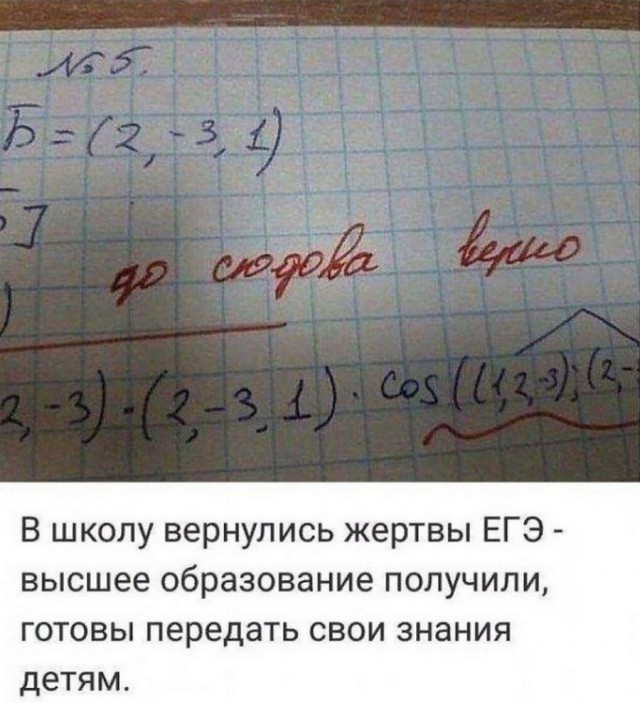 № 5.
Б = (2, -3, 1)
]
до сюдова верно
)
2, -3) · (2, -3, 1) · cos((1,2,-3); (2,-
В школу вернулись жертвы ЕГЭ -
высшее образование получили,
готовы передать свои знания
детям.